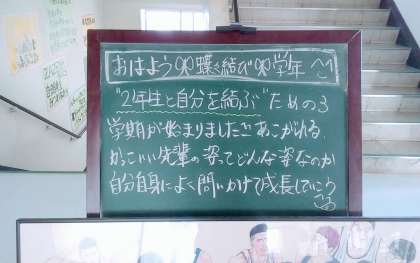 おはよう🎀蝶々結び🎀学年へ
"2年生と自分を結ぶ"ための3
学期が始まりました。あこがれる
かっこいい先輩の姿ってどんな姿なのか
自分自身によく問いかけて成長していこう